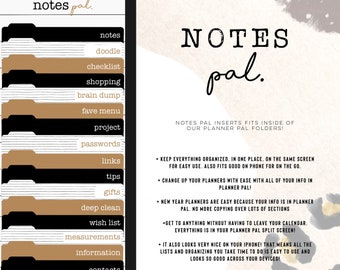 notes pal.
notes
doodle
checklist
shopping
brain dump
fave menu
project
passwords
links
tips
gifts
deep clean
wish list
measurements
information
contacts
NOTES
pal.
NOTES PAL INSERTS FITS INSIDE OF
OUR PLANNER PAL FOLDERS!
• KEEP EVERYTHING ORGANIZED, IN ONE PLACE, ON THE SAME SCREEN
FOR EASY USE. ALSO FITS GOOD ON PHONE FOR ON THE GO.
• CHANGE UP YOUR PLANNERS WITH EASE WITH ALL OF YOUR INFO IN
PLANNER PAL!
• NEW YEAR PLANNERS ARE EASY BECAUSE YOUR INFO IS IN PLANNER
PAL. NO MORE COPYING OVER LOTS OF SECTIONS
•GET TO ANYTHING WITHOUT HAVING TO LEAVE YOUR CALENDAR.
EVERYTHING IS IN YOUR PLANNER PAL SPLIT SCREEN!
• IT ALSO LOOKS VERY NICE ON YOUR IPHONE! THAT MEANS ALL THE
LISTS AND ORGANIZING YOU TAKE TIME TO DO IS EASY TO USE AND
LOOKS SO GOOD ACROSS YOUR DEVICES!